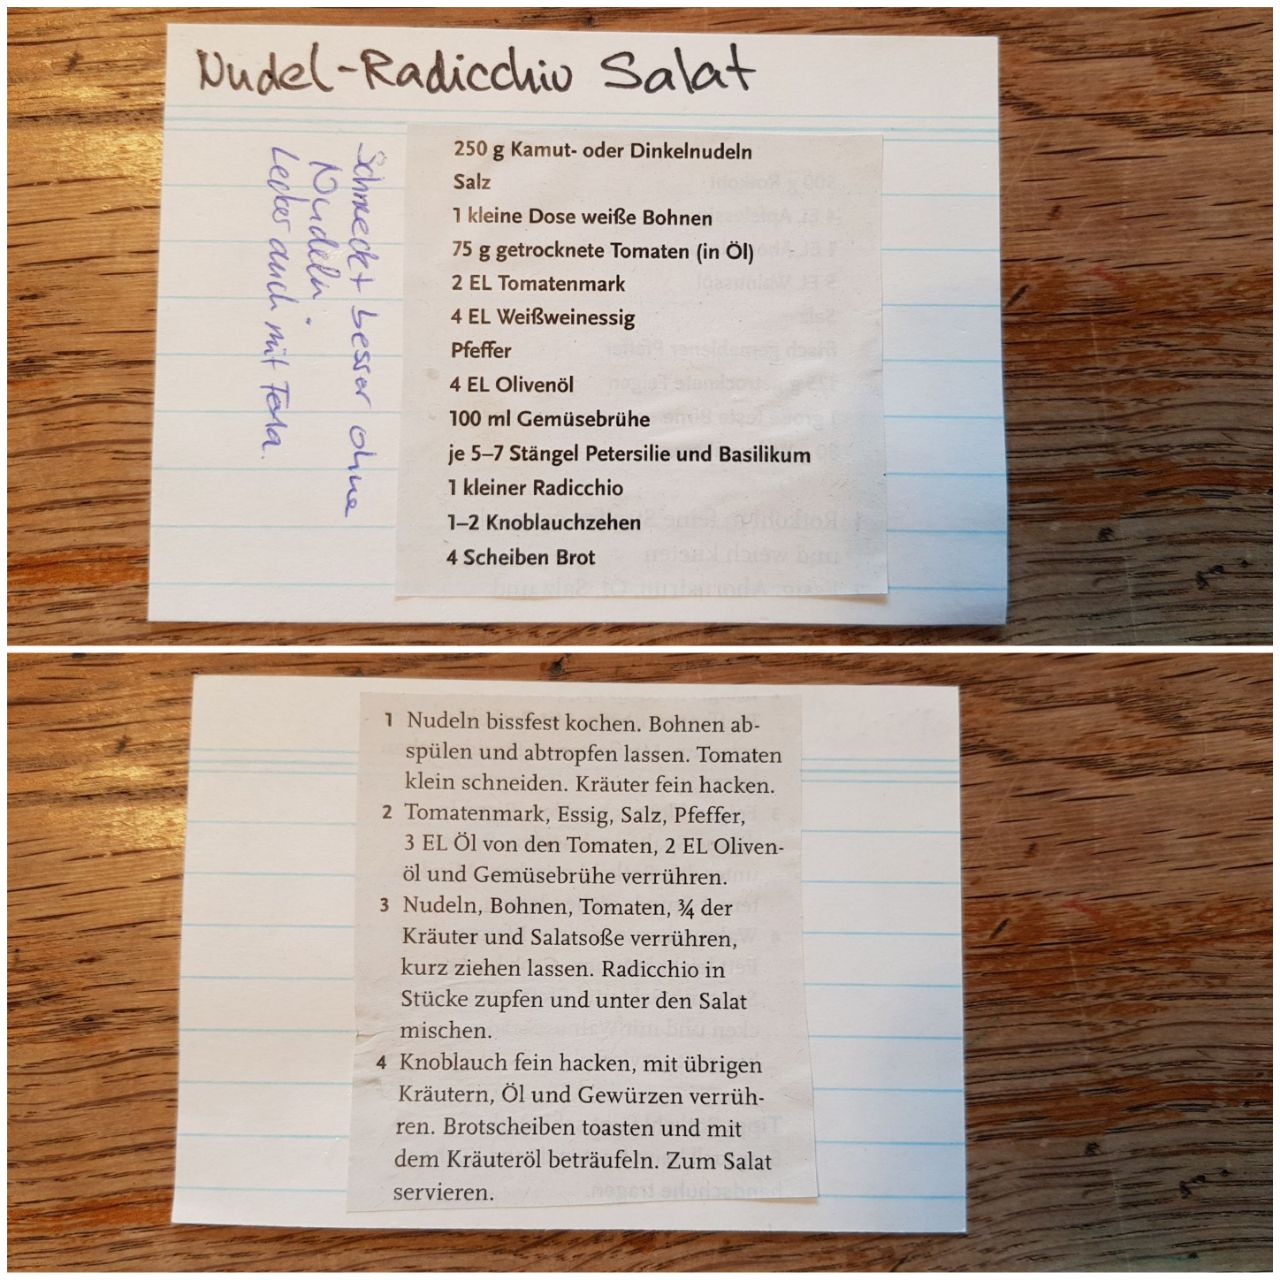 Nudel-Radicchio Salat
Schmeckt besser ohne
Nudeln.
Lecker auch mit Feta.
250 g Kamut- oder Dinkelnudeln
Salz
1 kleine Dose weiße Bohnen
75 g getrocknete Tomaten (in Öl)
2 EL Tomatenmark
4 EL Weißweinessig
Pfeffer
4 EL Olivenöl
100 ml Gemüsebrühe
je 5–7 Stängel Petersilie und Basilikum
1 kleiner Radicchio
1–2 Knoblauchzehen
4 Scheiben Brot
1 Nudeln bissfest kochen. Bohnen ab-
spülen und abtropfen lassen. Tomaten
klein schneiden. Kräuter fein hacken.
2 Tomatenmark, Essig, Salz, Pfeffer,
3 EL Öl von den Tomaten, 2 EL Oliven-
öl und Gemüsebrühe verrühren.
3 Nudeln, Bohnen, Tomaten, ¾ der
Kräuter und Salatsoße verrühren,
kurz ziehen lassen. Radicchio in
Stücke zupfen und unter den Salat
mischen.
4 Knoblauch fein hacken, mit übrigen
Kräutern, Öl und Gewürzen verrüh-
ren. Brotscheiben toasten und mit
dem Kräuteröl beträufeln. Zum Salat
servieren.